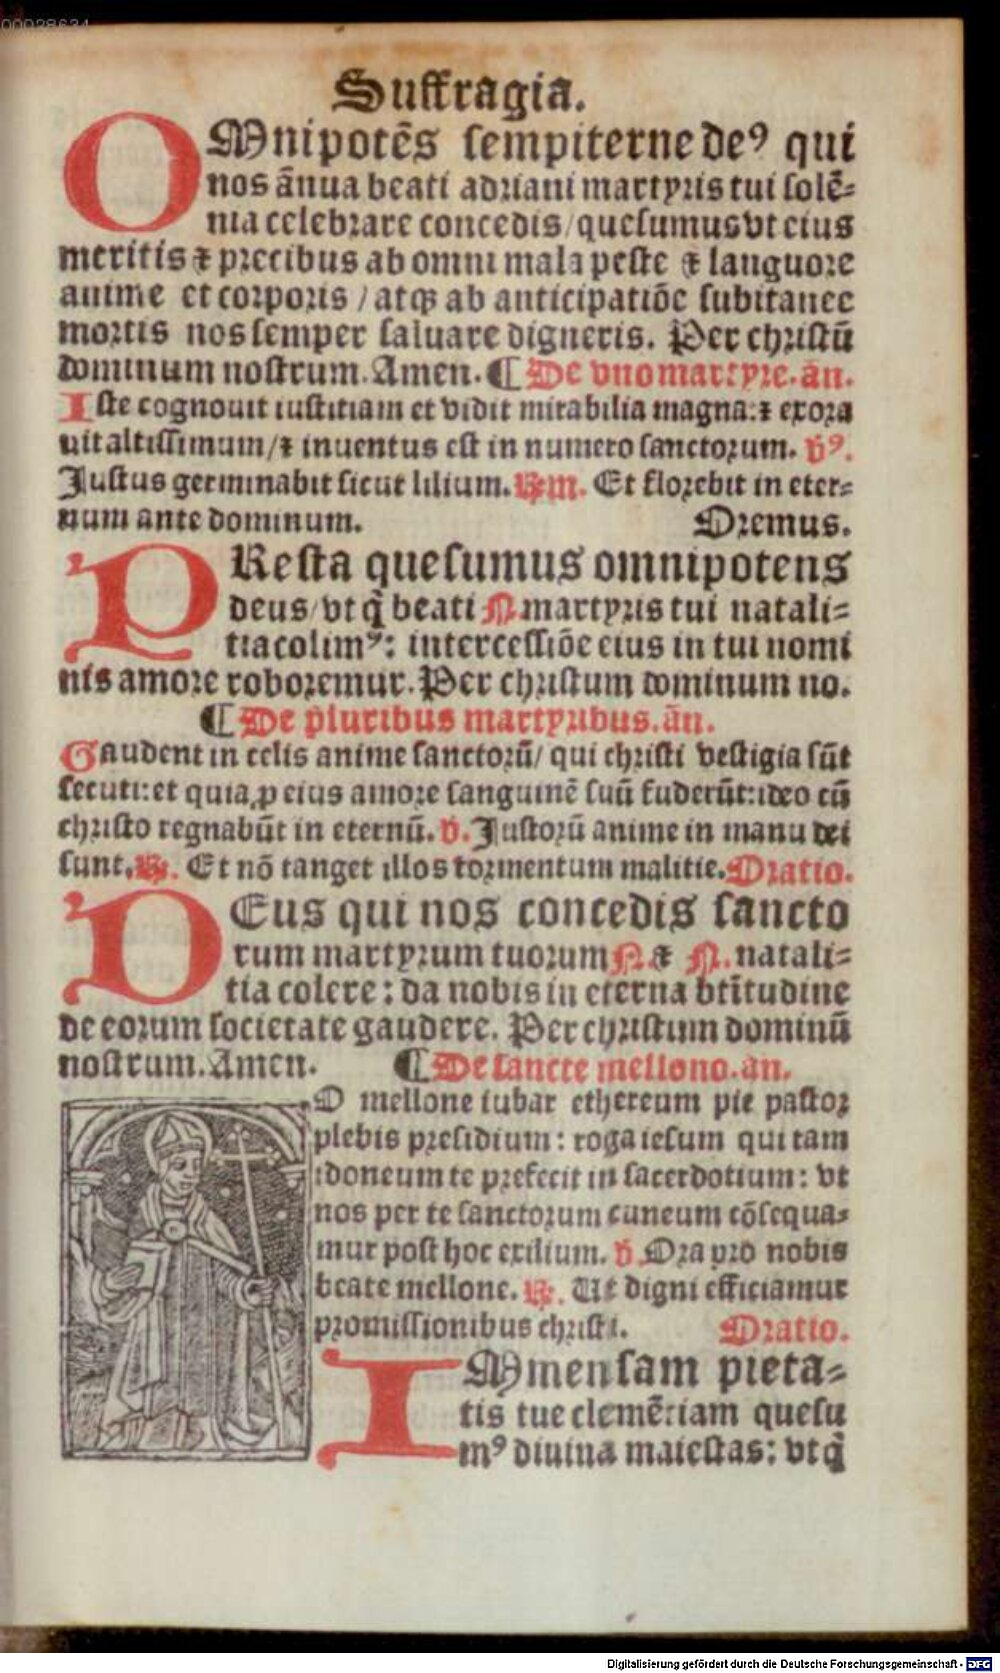 00028634
Suffragia.
OMnipotēs sempiterne deꝰ qui
nos ānua beati adriani martyris tui solē⸗
nia celebrare concedis/quesumus vt eius
meritis ⁊ precibus ab omni mala peste ⁊ languore
anime et corporis / atqꝫ ab anticipatiōe subitanee
mortis nos semper saluare digneris. Per christū
dominum nostrum. Amen. ¶ De vno martyre. ān.
Iste cognouit iustitiam et vidit mirabilia magna: ⁊ exora
uit altissimum/⁊ inuentus est in numero sanctorum. v̄ꝰ.
Justus germinabit sicut lilium. ℟m. Et florebit in eter⸗
num ante dominum. Oremus.
PResta quesumus omnipotens
deus/vt q̄ beati N. martyris tui natali⸗
tia colimꝰ: intercessiōe eius in tui nomi
nis amore roboremur. Per christum dominum no.
¶ De pluribus martyribus. ān.
Gaudent in celis anime sanctorū/ qui christi vestigia sūt
secuti: et quia ꝓ eius amore sanguinē suū fuderūt: ideo cū
christo regnabūt in eternū. v̄. Justorū anime in manu dei
sunt. ℟. Et nō tanget illos tormentum malitie. Oratio.
DEus qui nos concedis sancto
rum martyrum tuorum N. ⁊ N. natali⸗
tia colere: da nobis in eterna btītudine
de eorum societate gaudere. Per christum dominū
nostrum. Amen. ¶ De sancte mellono. an.
O mellone iubar ethereum pie pastor
plebis presidium: roga iesum qui tam
idoneum te prefecit in sacerdotium: vt
nos per te sanctorum cuneum cōsequa⸗
mur post hoc exilium. v̄. Ora pro nobis
beate mellone. ℟. Ut digni efficiamur
promissionibus christi. Oratio.
IMmensam pieta⸗
tis tue clemētiam quesu
mꝰ diuina maiestas: vt q̄
Digitalisierung gefördert durch die Deutsche Forschungsgemeinschaft - DFG